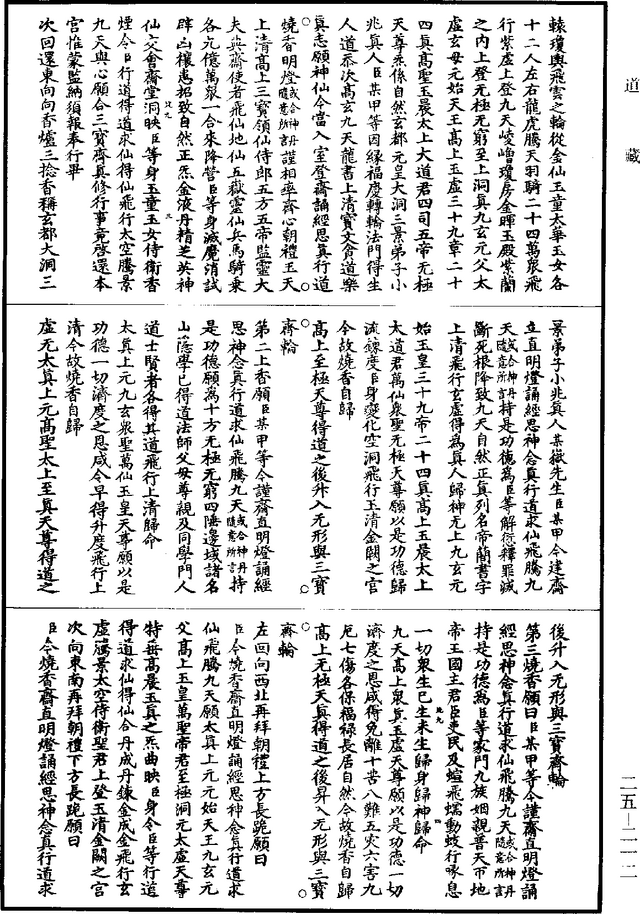 道藏
轅瓊輿飛雲之輪從金仙玉童太華玉女各
十二人左右龍虎騰天羽騎二十四萬衆飛
行紫虛上登九天崚嶒瓊房金暉玉殿紫蘭
之內上登无極无窮至上洞真九玄元父太
虛玄母元始天王高上玉虛三十九章二十
四真高聖玉晨太上大道君四司五帝无極
天尊某係自然玄都元皇大洞三景弟子小
兆真人臣某甲等因緣福慶轉輪法門得生
人道忝次高玄九天龍書上清寶文會道樂
真志願神仙今當入室登齋誦經思真行道
燒香明燈或合神丹隨意所言謹相率齊心朝禮玉天
上清高上三寶領仙侍郎五方五帝監靈大
夫典齋使者飛仙地仙五嶽靈仙兵馬騎乗
各九億萬衆一合來降營臣等身滅魔消試
辟凶穰患招致自然正炁金液丹精芝英神
仙交會齋堂洞映臣等身玉童玉女侍衛香
煙令臣行道得道求仙得仙飛行太空騰景
九天與心願合三寶齋真修行事竟啓還本
宮惟蒙監納須報奉行畢
次回還東向向香爐三捻香稱玄都大洞三
景弟子小兆真人某嶽先生臣某甲今建齋
立直明燈誦經思神念真行道求仙飛騰九
天或合神丹隨意所言持是功德爲臣等解愆釋罪滅
斷死根降致九天自然正真列名帝簡書字
上清飛行玄虛得爲真人歸神无上九玄元
始玉皇三十九帝二十四真高上玉晨太上
太道君萬仙衆聖无極天尊願以是功德歸
流錬度臣身變化空洞飛行玉清金闕之宫
今故燒香自歸
高上至極天尊得道之後升入无形與三寶
齊輪
第二上香願臣某甲等今謹齋直明燈誦經
思神念真行道求仙飛騰九天或合神丹隨意所言持
是功德願爲十方无極无窮四陲邊域諸名
山隱學已得道法師父母尊親及同學門人
道士賢者各得其道飛行上清歸命
太真上元九玄衆聖萬仙玉皇天尊願以是
功德一切濟度之恩咸令早得升度飛行上
清今故燒香自歸
虛无太真上元高聖太上至真天尊得道之
後升入无形與三寶齊輪
第三燒香願曰臣某甲等今謹齋直明燈誦
經思神念真行道求仙飛騰九天或合神丹隨意所言
持是功德爲臣等家門九族姻親普天帀地
帝王國主君臣吏民及蝖飛蠕動蚑行喙息
一切衆生已生未生歸身歸神歸命
九天高上衆真玉虛天尊願以是功德一切
濟度之恩咸得免離十苦八難五灾六害九
厄七傷各保福禄長居自然今故燒香自歸
高上无極天真得道之後昇入无形與三寶
齊輪
左回向西北再拜朝禮上方長跪願曰
臣今燒香齋直明燈誦經思神念真行道求
仙飛騰九天願太真上元元始天王九玄元
父高上玉皇萬聖帝君至極洞元太虛天尊
特垂高晨玉真之炁曲映臣身令臣等行道
得道求仙得仙合丹成丹鍊金成金飛行玄
虛騰景太空侍衛聖君上登玉清金闕之宫
次向東南再拜朝禮下方長跪願曰
臣今燒香齋直明燈誦經思神念真行道求
二五—二一二